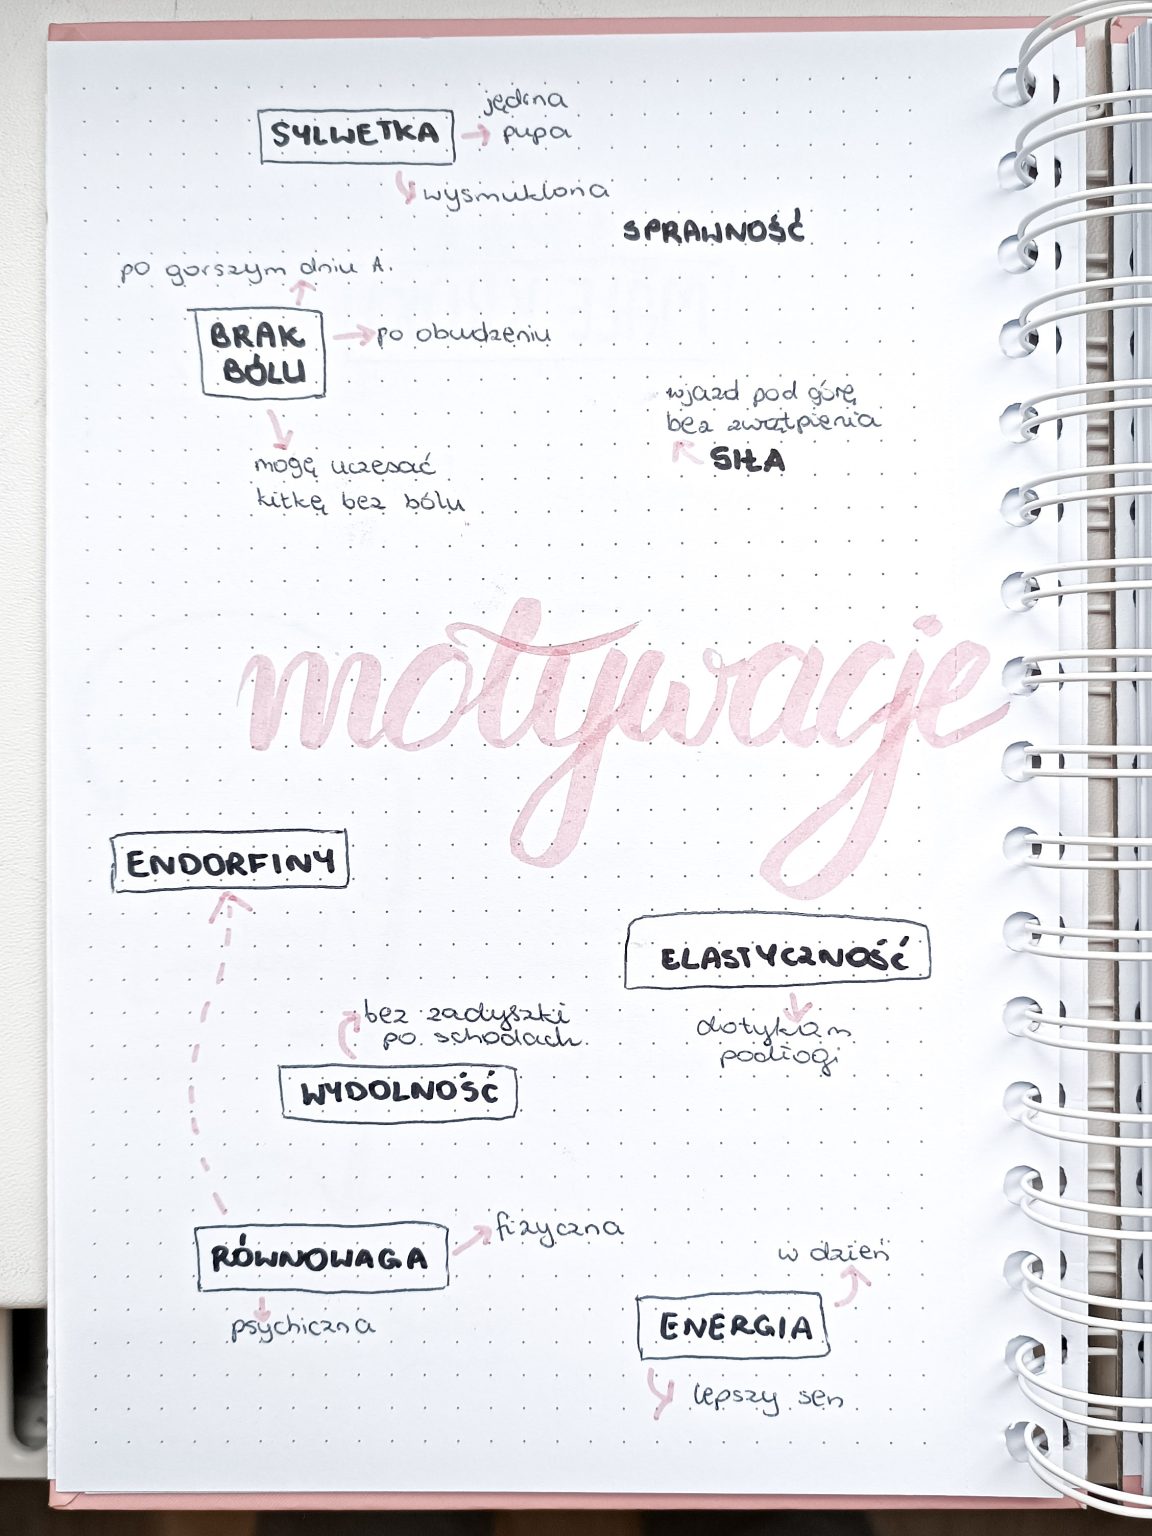 SYLWETKA
jędrna
pupa
wysmuklona
SPRAWNOŚĆ
po gorszym dniu A.
BRAK
BÓLU
po obudzeniu
mogę uczesać
kitkę bez bólu
wjazd pod górę
bez zwątpienia
SIŁA
motywacje
ENDORFINY
ELASTYCZNOŚĆ
dotykam
podłogi
bez zadyszki
po schodach
WYDOLNOŚĆ
RÓWNOWAGA
fizyczna
psychiczna
w dzień
ENERGIA
lepszy sen